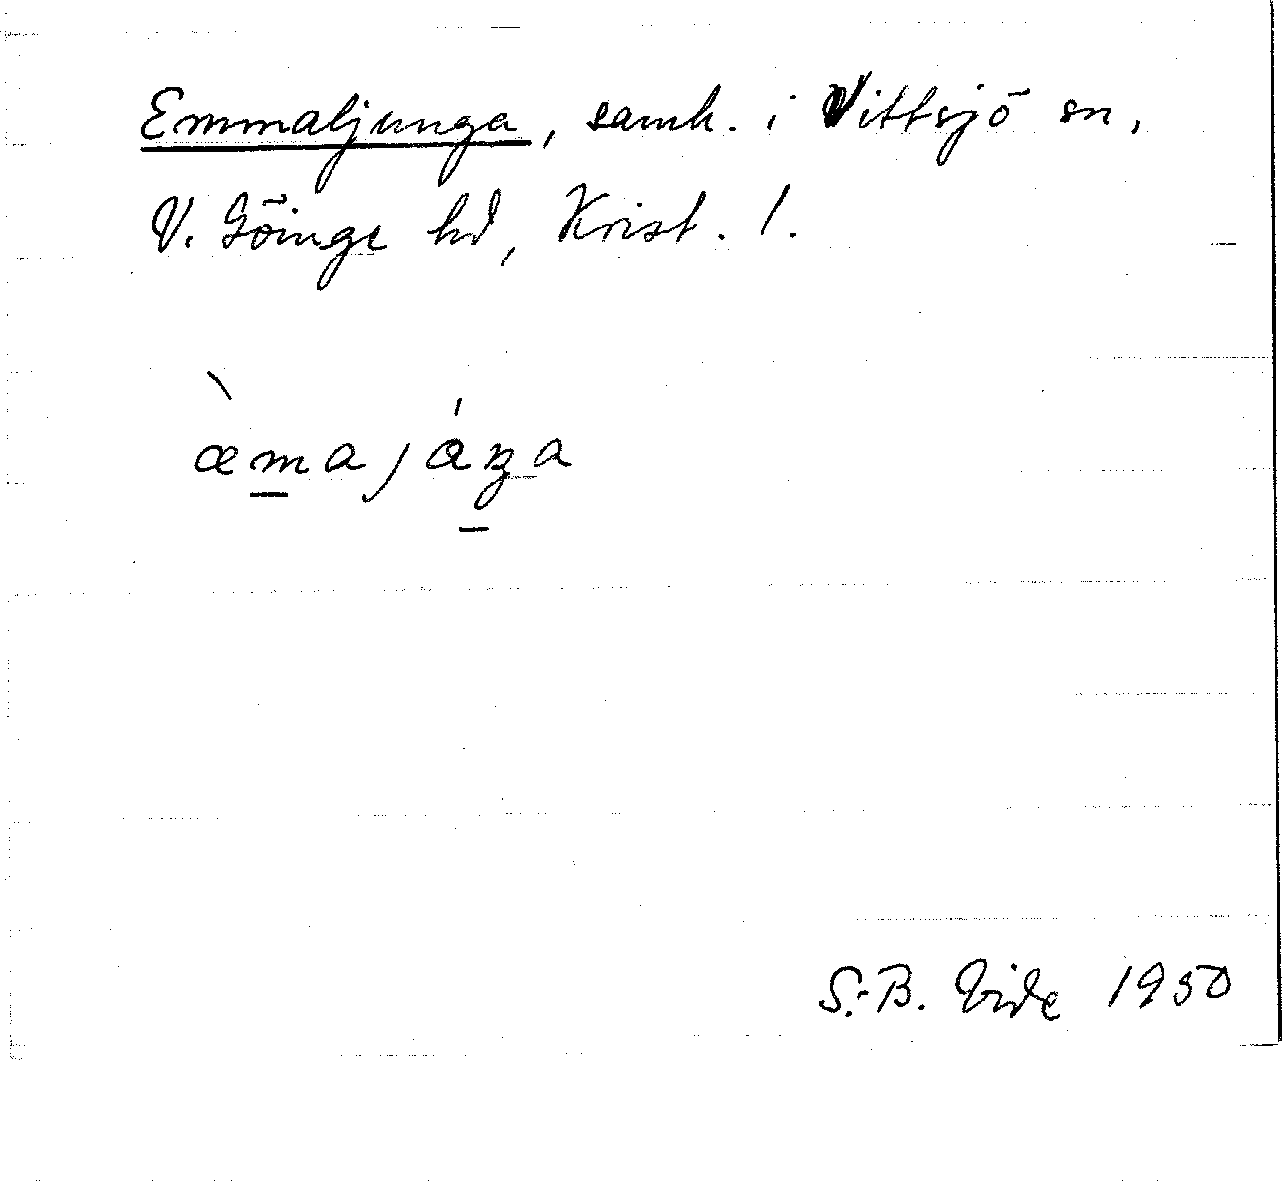 Emmaljunga, samh. i Vittsjö sn,
V. Göinge hd, Krist. l.
æ̀majáŋa
S.-B. Vide 1950